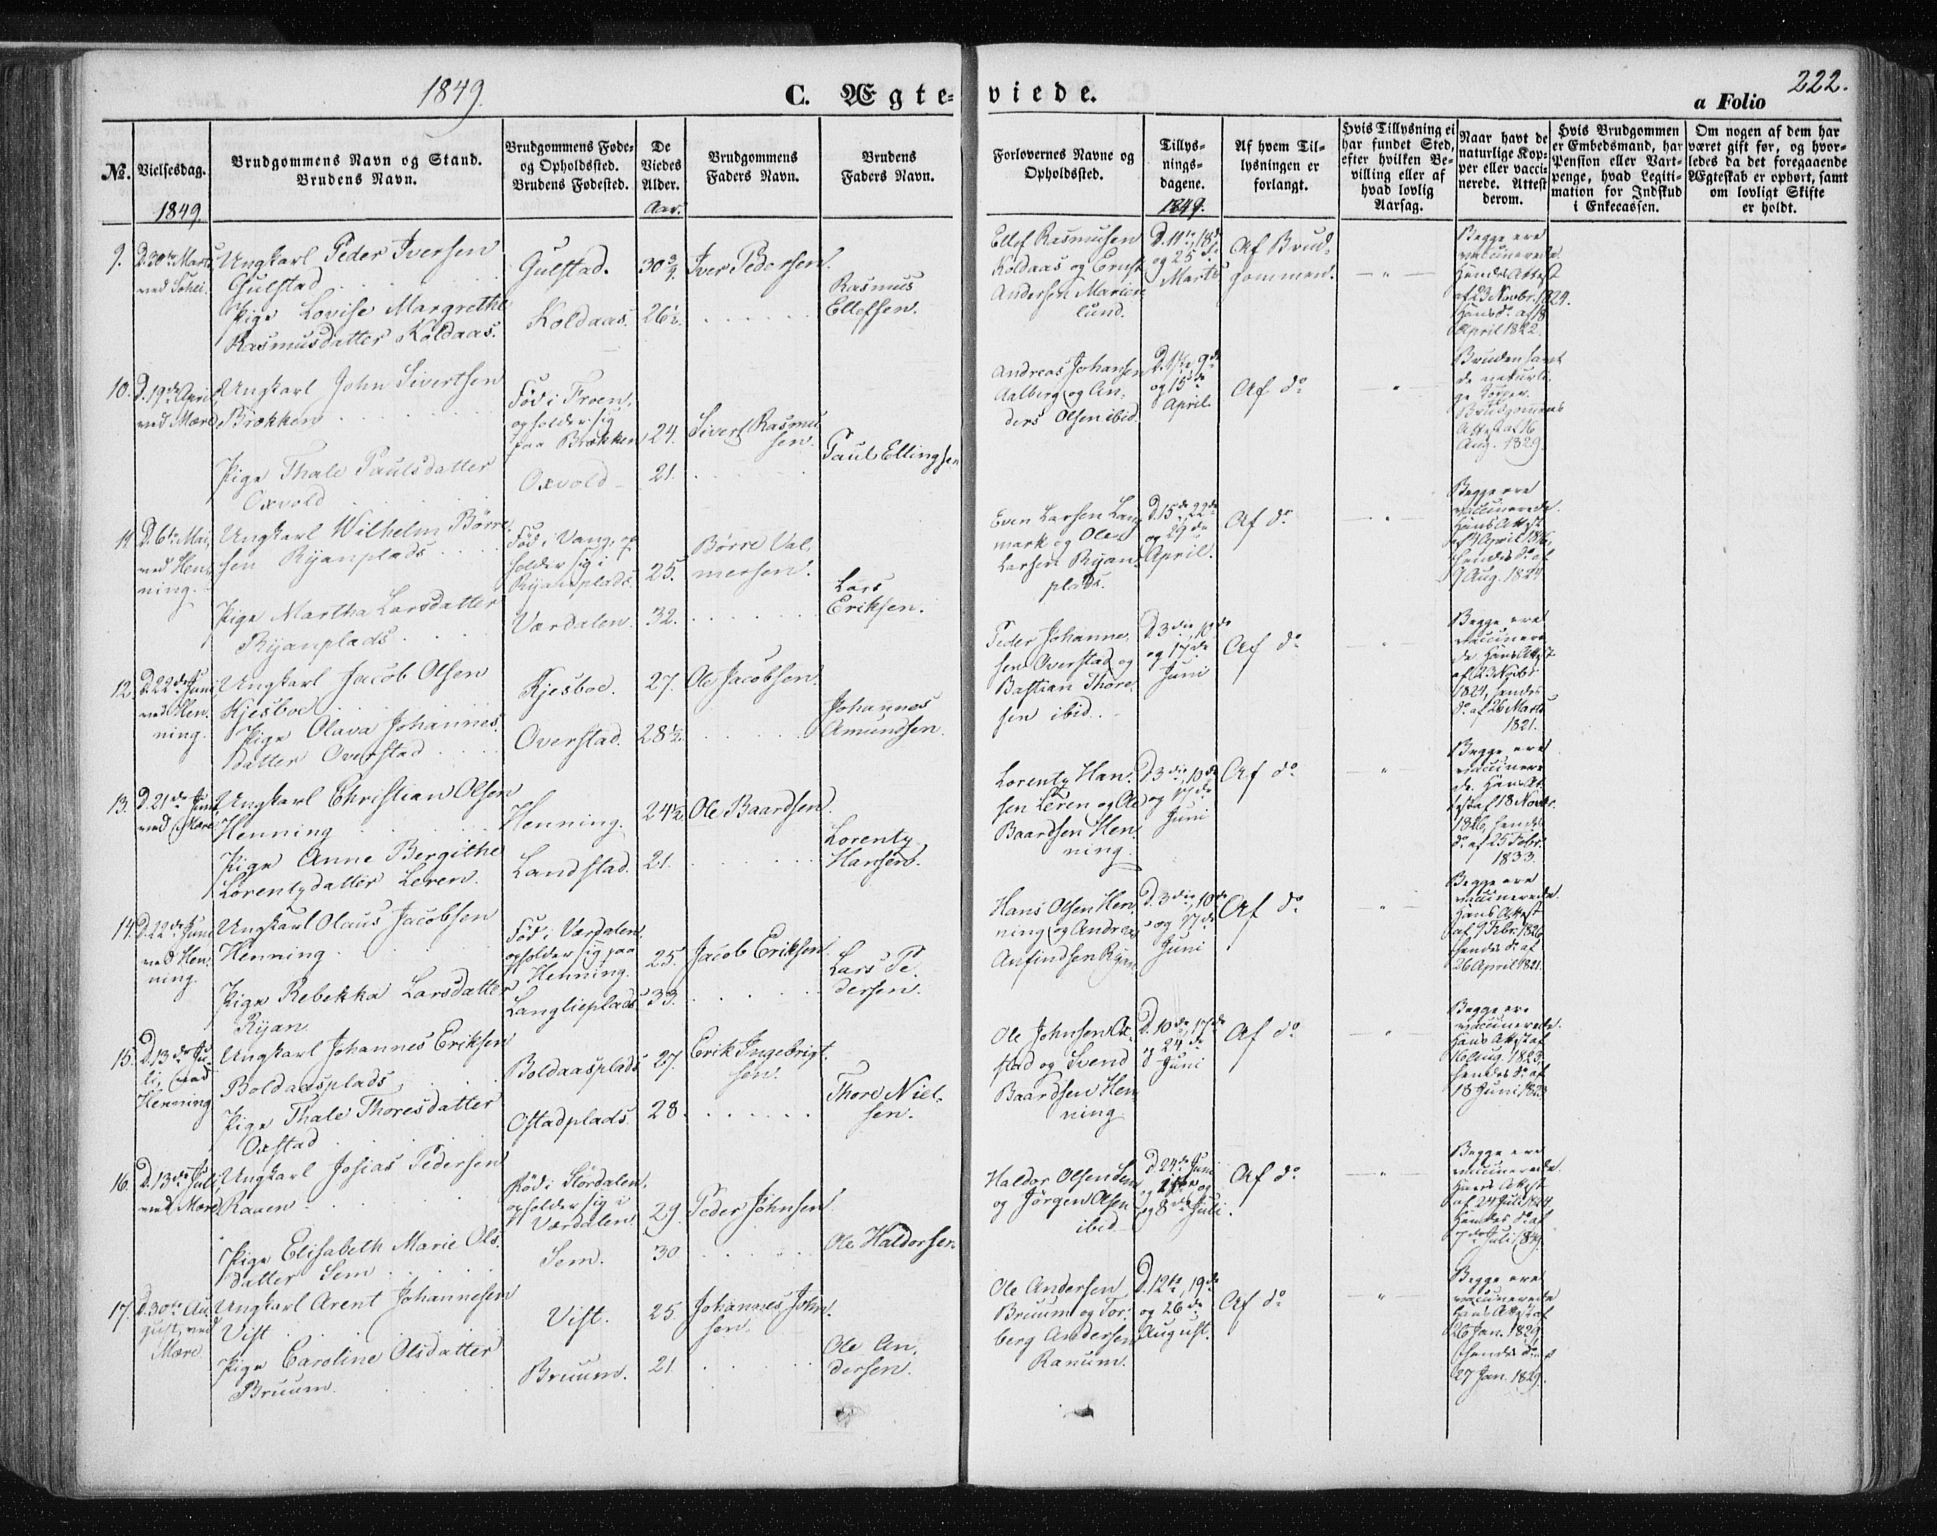 1849.
C. Ægteviede.
222.
a Folio
№.
Vielsesdag.
1849
Brudgommens Navn og Stand.
Brudens Navn.
Brudgommens Føde-
og Opholdssted.
Brudens Fødested.
De
Viedes
Alder.
Aar.
Brudgommens
Faders Navn.
Brudens
Faders Navn.
Forlovernes Navne og
Opholdssted.
Tillys-
nings-
dagene.
1849.
Af hvem Til-
lysningen er
forlangt.
Hvis Tillysning ei
har fundet Sted,
efter hvilken Be-
villing eller af
hvad lovlig
Aarsag.
Naar havt de
naturlige Kop-
per eller vacci-
nerede. Attest
derom.
Hvis Brudgommen
er Embedsmand, har
Pension eller Vart-
penge, hvad Legiti-
mation for Indskud
i Enkecassen.
Om nogen af dem har
været gift før, og hvor-
ledes da det foregaaende
Ægteskab er ophørt, samt
om lovligt Skifte
er holdt.
9.
D. 30te Marts
ved
Ungkarl Peder Iversen
Gulstad
Pige Lovise Margrethe
Rasmusdatter Koldaas.
Gulstad.
Koldaas.
30
26½
Iver Pedersen.
Rasmus
Ellefsen.
Ellef Rasmusen
Koldaas og Ernst
Andersen Marien
lund.
D. 11te, 18de
og 25de
Marts
Af Brud-
gommen.
Begge ere
vaccinerede.
Hendes Attest
af 23 Novbr. 1824.
Hans do. af 18
April 1822.
10.
D. 19de April
ved Mære
Ungkarl John Sivertsen
Brækken
Pige Thale Paulsdatter
Oxvold
Fød i Froen,
opholder sig
paa Brækken
Oxvold
24.
21.
Sivert Rasmu
sen.
Paul Ellingsen
Andreas Johansen
Aalberg og An-
ders Olsen ibid.
D. 1ste, 9de
og 15de
April.
Af do
Bruden havt
de naturli-
ge Kopper.
Brudgommens
Attest af 16
Aug. 1829.
11
D. 6te Mai,
ved Hen-
ning.
Ungkarl Wilhelm Børre
sen Ryanplads
Pige Martha Larsdatter
Ryanplads
Fød i Vang, op
holder sig i
Ryanplads
Værdalen.
25.
32.
Børre Val,
mersen.
Lars
Eriksen.
Even Larsen Lang
mark og Ole
Larsen Ryan-
plads.
D. 15de, 22de
og 29de
April.
Af do
Begge ere
vaccinerede.
Hans Attest
af April
hendes do. af
9 Aug. 1824.
12.
D. 22de Juni,
ved Hen-
ning.
Ungkarl Jacob Olsen
Kjesboe
Pige Olava Johannes-
datter Overstad
Kjesboe.
Overstad.
27.
28½.
Ole Jacobsen.
Johannes
Amundsen.
Peder Johanne-
sen Overstad og
Bastian Thore-
sen ibid.
D. 3die, 10de
og 17de
Juni
Af do
Begge ere
vaccinere-
de. Hans Attest
af 23 Novbr
1824, hendes
do. af 26 Marts
1821.
13.
D. 21de Juni
ved Mære
Ungkarl Christian Olsen
Henning
Pige Anne Bergithe
Lorentzdatter Leren.
Henning.
Landstad.
24½
21.
Ole Baardsen.
Lorentz
Hansen.
Lorentz Han-
sen Leren og Ole
Baardsen Hen-
ning.
D. 3die, 10de
og 17de
Juni
Af do
Begge ere
vaccinere-
de. Hans At-
test af 18 Novbr.
1826, hendes
do. af 25 Febr.
1833.
14.
D. 22de Juni
ved Hen-
ning.
Ungkarl Olaus Jacobsen
Henning.
Pige Rebekka Larsdatter
Ryan
Fød i Værdalen,
opholder sig paa
Henning.
Langlieplads.
25.
33.
Jacob Eriksen.
Lars Pe-
dersen.
Hans Olsen Hen-
ning og Andreas
Anfindsen Ryan.
D. 3die, 10de
og 17de
Juni
Af do
Begge ere
vaccinerede.
Hans Attest
af 9 Febr. 1826
hendes do. af
26 April 1821.
15.
D. 13de Ju-
li, ved
Henning
Ungkarl Johannes Eriksen
Boldaasplads
Pige Thale Thoresdatter
Oxstad
Boldaasplads
Ostadplads.
27.
28.
Erik Ingebrigt-
sen.
Thore Niel-
sen.
Ole Johnsen Ox-
stad og Svend
Baardsen Hen-
ning.
D. 10de, 17de
og 24de
Juni
Af do
Begge ere
vaccinerede.
Hans Attest af
16 Aug. 1823,
hendes do. af
18 Juni 1823
16.
D. 13de Juli
ved Mære
Ungkarl Josias Pedersen
Raaen
Pige Elisabeth Marie Ols-
datter Sem
Fød i Stördalen,
opholder sig i
Værdalen
Sem.
29.
30
Peder Johnsen
Ole Haldorsen
Haldor Olsen Sem
og Jørgen Olsen
ibid
D. 24de Juni
1ste og
og 8de Juli.
Af do
Begge ere
vaccinerede.
Hans Attest
af 24 Juli
Hendes do. af
Juli
17.
D. 30te Au-
gust, ved
Mære
Ungkarl Arent Johannesen
Vist
Pige Caroline Olsdatter
Bruum.
Vist.
Bruum.
25.
21
Johannes John-
sen.
Ole An-
dersen.
Ole Andersen
Bruum og Tor-
berg Andersen
Ranum.
D. 12te, 19de
og 26de
August.
Af do
Begge ere
vaccinerede
Hans Attest af
26 Jan. 1829,
hendes do. af
27 Jan. 1829.